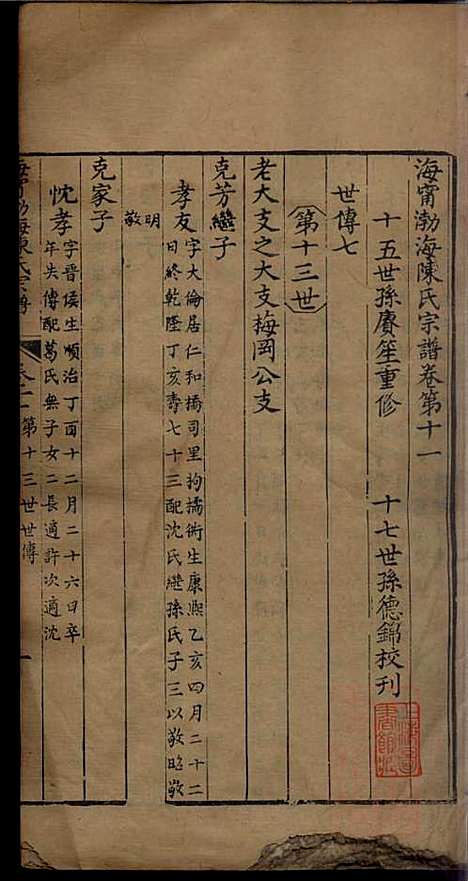 海甯渤海陳氏宗譜卷第十一
十五世孫賡笙重修　十七世孫德錦校刊
世傳七
第十三世
老大支之大支梅岡公支
克芳繼子
孝友字大倫居仁和橋司里拘橘衖生康熙乙亥四月二十二
日終乾隆丁亥壽七十三配沈氏繼孫氏子三以敬昭敬
明敬
克家子
忱孝字晉侯生順治丁酉十二月二十六日卒
年失傳配葛氏無子女二長適許次適沈
海甯渤海陳氏宗譜　卷十一　第十三世世傳　一
上海圖書館藏